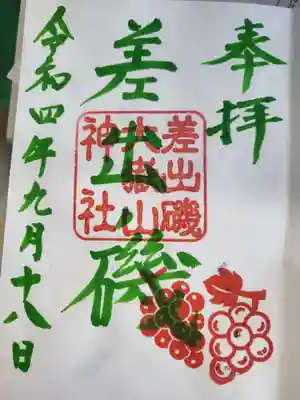 奉拝
差出磯
差出磯
大嶽山
神社
令和四年九月十八日